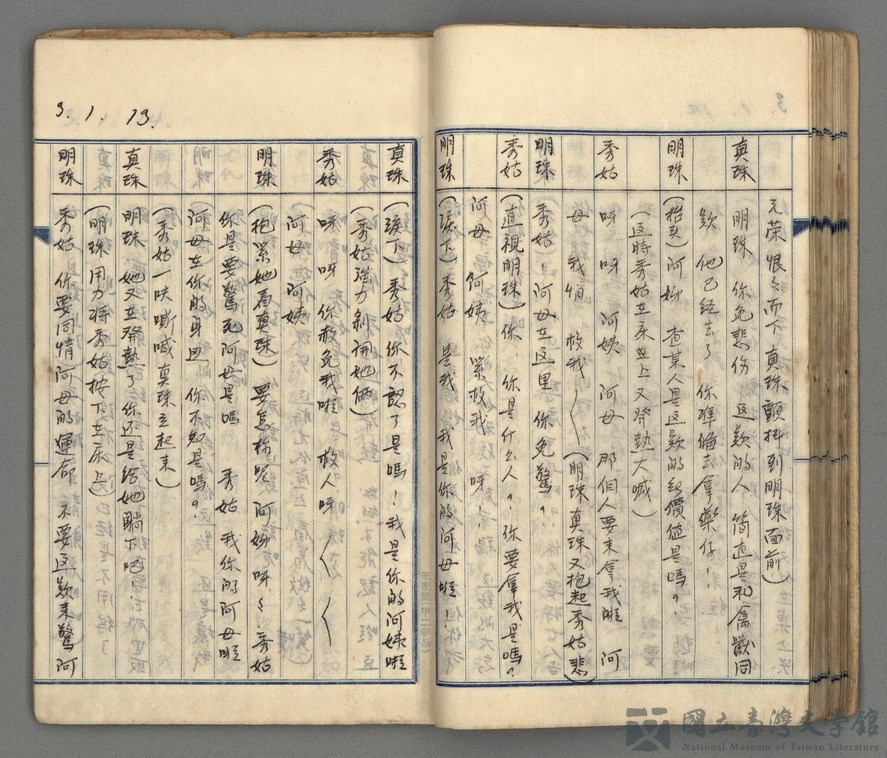 元荣恨々而下 真珠顫抖到明珠面前)
真珠 明珠 你免悲伤 这款的人 简直是和禽獸同
款 他已经去了 你準備去拿藥仔!!
明珠 (抬头)阿妳 查某人是这款的 價值是嗎?
(这時秀姑在床上又發熱大喊)
秀姑 呀 呀 阿姨 阿母 那個人要来拿我啦 阿
母 我怕 救我〱(明珠真珠又抱起秀姑悲)
明珠 秀姑!阿母在这里 你免驚?!
秀姑 (直視明珠)你 你是什么人?你要拿我是嗎?
阿母 阿姨 緊救我 呀
明珠 (淚下)秀姑 是我 我是你的阿母啦!
3. 1. 13.
真珠 (淚下)秀姑你不認了是嗎!我是你的阿姨啦
(秀姑強力剝開她倆)
秀姑 呀 呀 你赦免我啦 救人呀〱〱
阿母 阿姨
明珠 (抱緊她看真珠)要怎樣呢 阿妳呀々秀姑
你是要驚死阿母是嗎 秀姑 我你的阿母啦
阿母在你的身边 你不知是嗎?
(秀姑一味嘶喊真珠立起来)
真珠 明珠 她又在發熱了 你还是给她躺下吧!
(明珠用力将秀姑按下在床上)
明珠 秀姑 你要同情阿母的運命 不要这款来驚阿
國立臺灣文学館
National Museum of Taiwan Literature